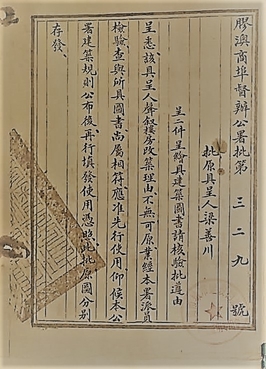 膠澳商埠督辦公署批第三二九號
批原具呈人梁善川
呈一件呈繪具建築圖書請核驗批遵由
呈悉該具呈人聲敘樓房改築理由不無可原業經本署派員
檢驗查與所具圖書尚屬相符應准先行使用仰候本公
署建築規則公布後再行填發使用憑照此批原圖分別
存發